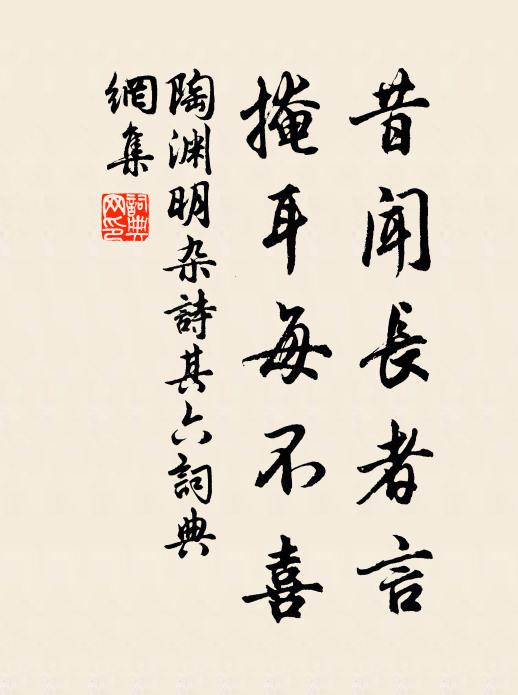 昔闻長者言
掩耳每不喜
陶渊明杂詩其六詞典
網集
詞典
网印